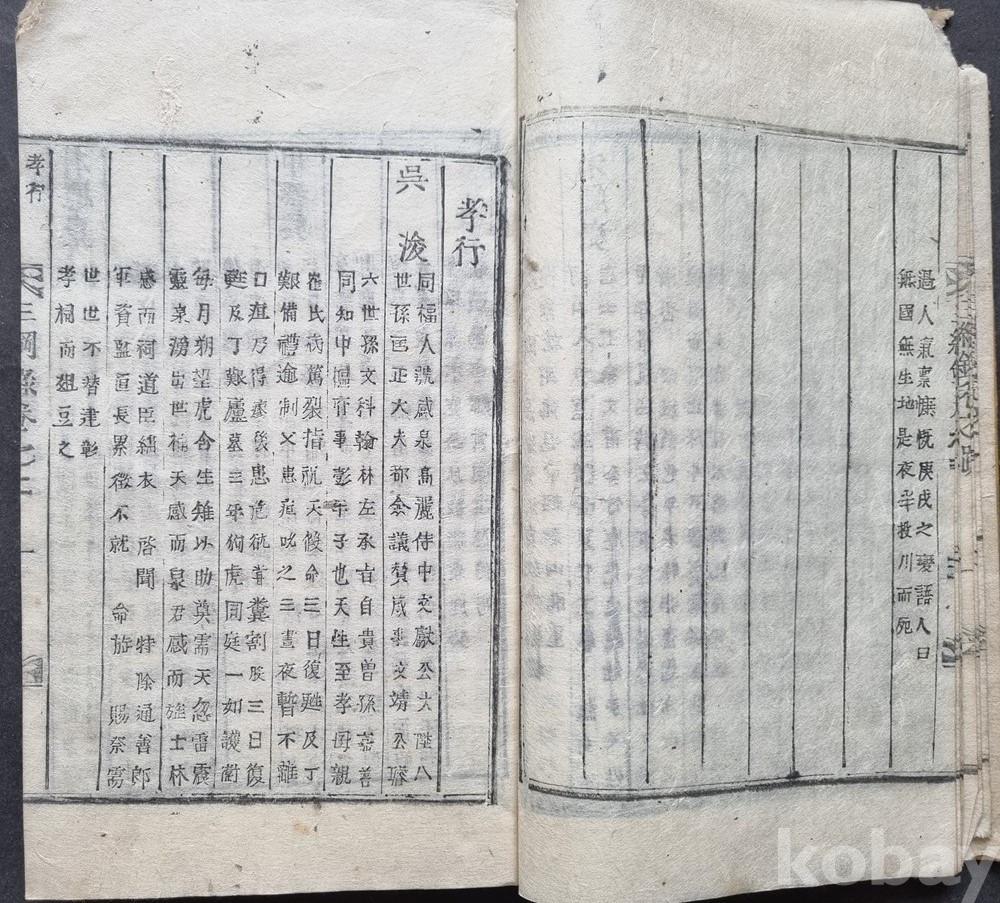 過人氣稟慷慨庚戌之變語人曰
無國無生地是夜半投川而死
孝行
吳浚
同福人號感泉高麗侍中文獻公大陞八
世孫匡正大夫都僉議贊成事文靖公蕂
六世孫文科翰林左承旨自貴曾孫嘉善
同知中樞府事彭年子也天生至孝母親
崔氏病篤裂指祝天候命三日復甦及丁
艱備禮逾制父患疽吮之三晝夜暫不離
口疽乃得差後患危欲嘗糞割股三日復
甦及丁艱廬墓三年狗虎同庭一如護衛
每月朔望虎含生雉以助奠需天忽雷震
靈泉湧出世稱天感而泉君感而旌士林
感而祠道臣繡衣 啓聞 特除通善郎
軍資監直長累徵不就 命旌 賜祭需
世世不替建彰
孝祠而俎豆之
孝行
三綱錄卷之二
一
kobay